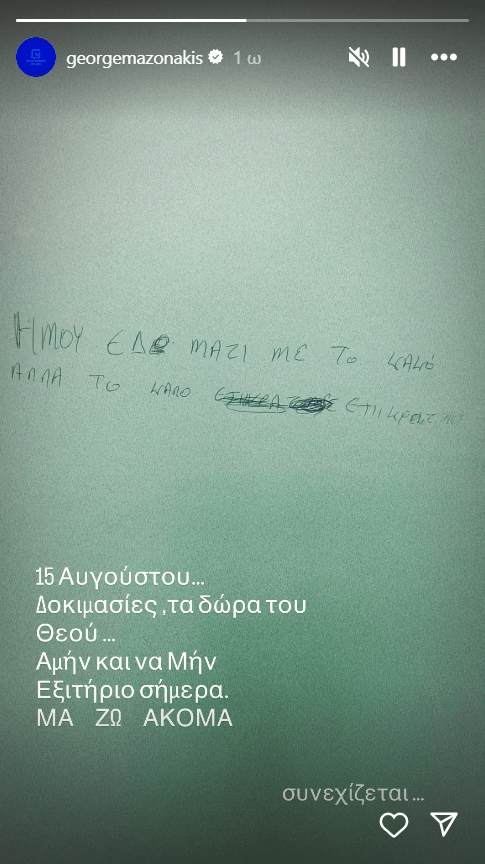 georgemazonakis 1 ω
ΗΜΟΥ ΕΔΩ ΜΑΖΙ ΜΕ ΤΟ ΚΑΚΟ
ΑΛΛΑ ΤΟ ΚΑΛΟ
15 Αυγούστου...
Δοκιμασίες ,τα δώρα του
Θεού ...
Αμήν και να Μήν
Εξιτήριο σήμερα.
ΜΑ ΖΩ ΑΚΟΜΑ
συνεχίζεται ...